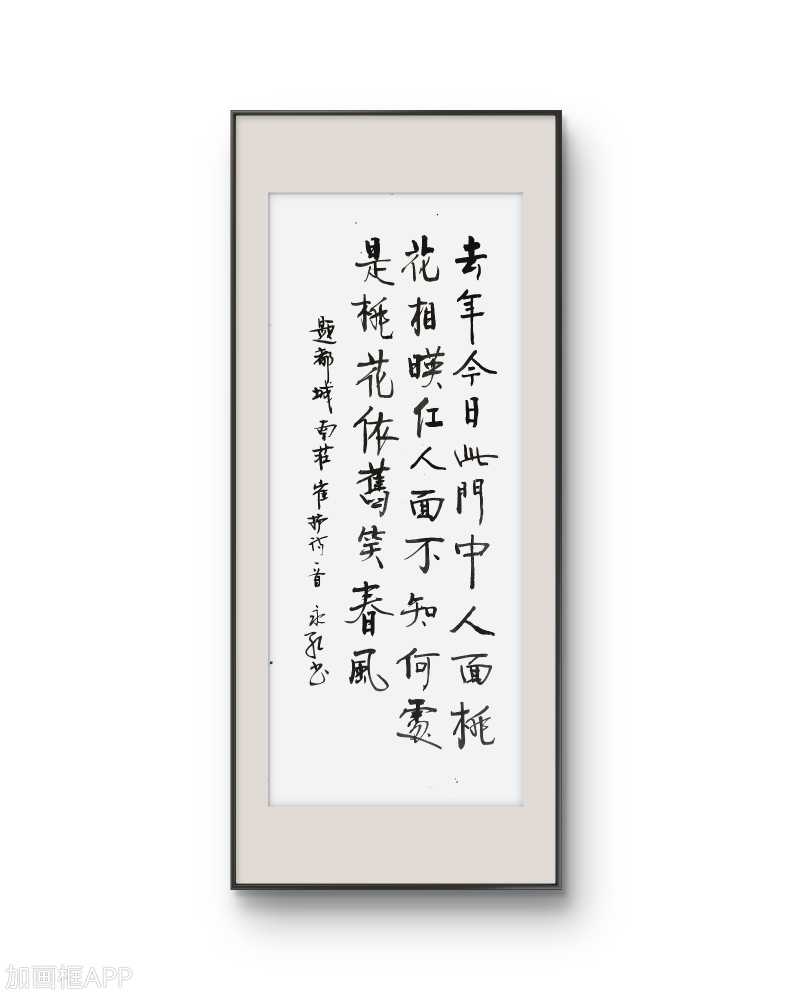 去年今日此門中人面桃
花相暎红人面不知何處
是桃花依舊笑春風
题都城南莊崔护诗一首 永书
加画框APP